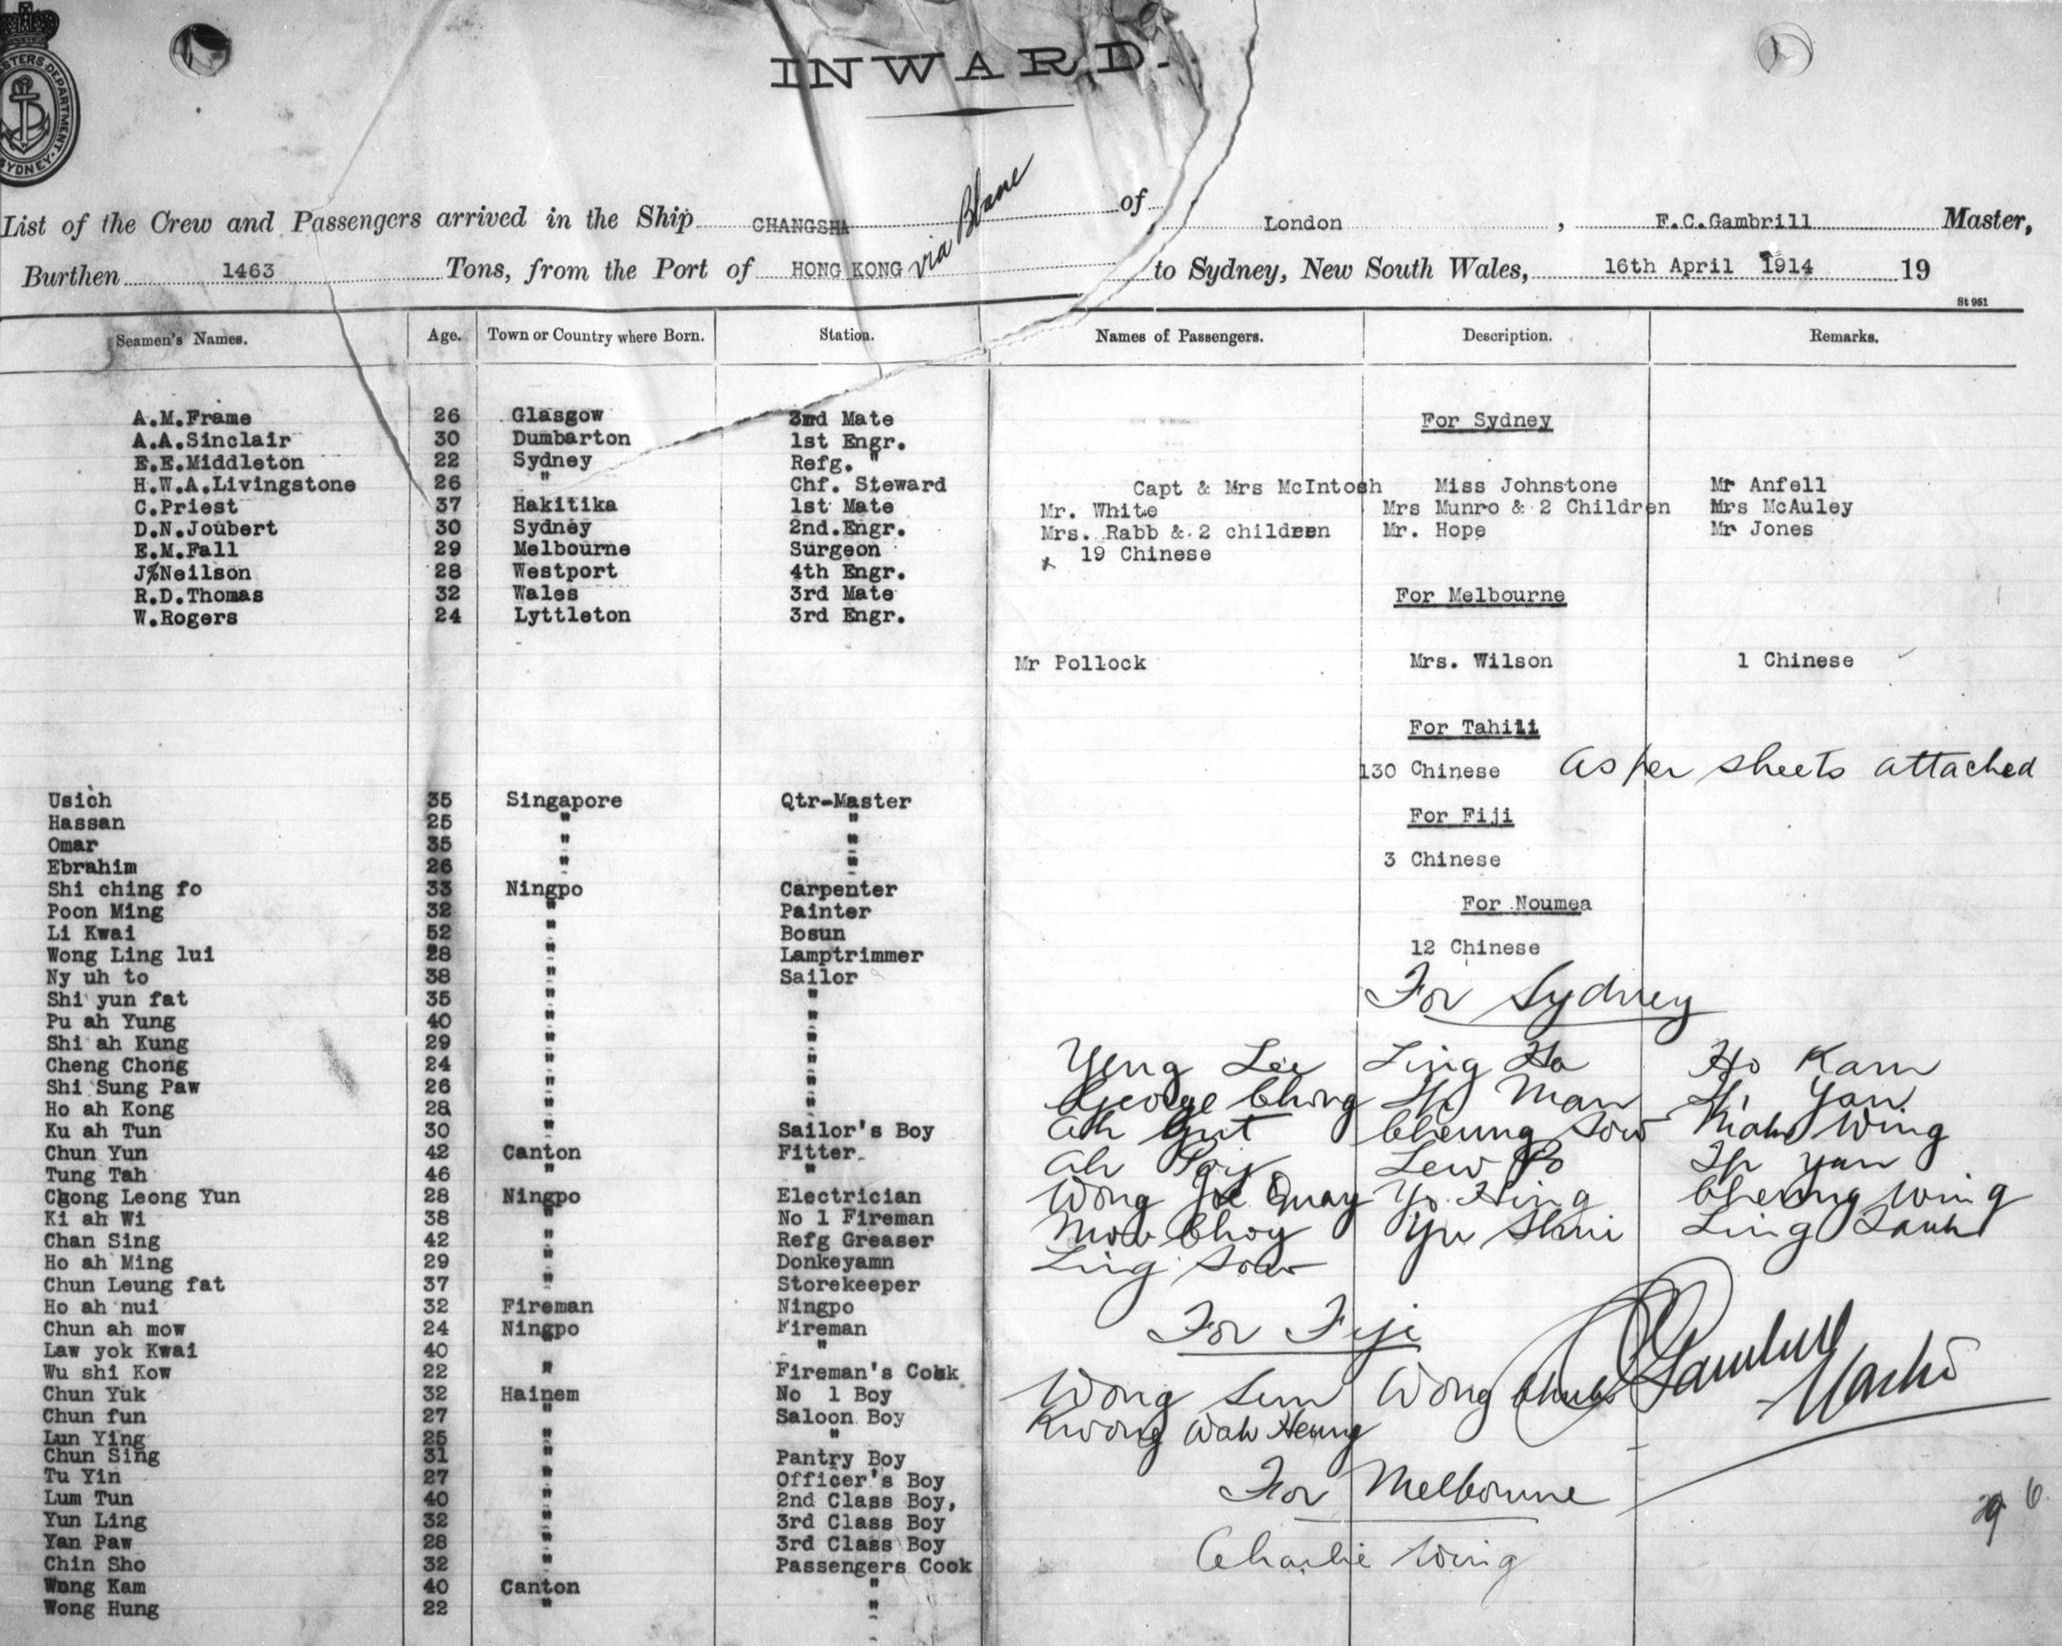 INWARD.
List of the Crew and Passengers arrived in the Ship CHANGSHA of London, F.C.Gambrill Master,
Burthen 1463 Tons, from the Port of HONG KONG via to Sydney, New South Wales, 16th April 1914 19
St 961
Seamen's Names. Age. Town or Country where Born. Station. Names of Passengers. Description. Remarks.
A.M.Frame 26 Glasgow 2nd Mate
A.A.Sinclair 30 Dumbarton 1st Engr.
E.E.Middleton 22 Sydney Refg. "
H.W.A.Livingstone 26 " Chf. Steward
C.Priest 37 Hakitika 1st Mate
D.N.Joubert 30 Sydney 2nd.Engr.
E.M.Fall 29 Melbourne Surgeon
J%Neilson 28 Westport 4th Engr.
R.D.Thomas 32 Wales 3rd Mate
W.Rogers 24 Lyttleton 3rd Engr.
Usich 35 Singapore Qtr-Master
Hassan 25 " "
Omar 35 " "
Ebrahim 26 " "
Shi ching fo 33 Ningpo Carpenter
Poon Ming 32 " Painter
Li Kwai 52 " Bosun
Wong Ling lui 28 " Lamptrimmer
Ny uh to 38 " Sailor
Shi yun fat 35 " "
Pu ah Yung 40 " "
Shi ah Kung 29 " "
Cheng Chong 24 " "
Shi Sung Paw 26 " "
Ho ah Kong 28 " "
Ku ah Tun 30 " Sailor's Boy
Chun Yun 42 Canton Fitter
Tung Tah 46 " "
Chong Leong Yun 28 Ningpo Electrician
Ki ah Wi 38 " No 1 Fireman
Chan Sing 42 " Refg Greaser
Ho ah Ming 29 " Donkeyamn
Chun Leung fat 37 " Storekeeper
Ho ah nui 32 Fireman Ningpo
Chun ah mow 24 Ningpo Fireman
Law yok Kwai 40 "
Wu shi Kow 22 " Fireman's Cook
Chun Yuk 32 Hainem No 1 Boy
Chun fun 27 " Saloon Boy
Lun Ying 25 " "
Chun Sing 31 " Pantry Boy
Tu Yin 27 " Officer's Boy
Lum Tun 40 " 2nd Class Boy,
Yun Ling 32 " 3rd Class Boy
Yan Paw 28 " 3rd Class Boy
Chin Sho 32 " Passengers Cook
Wong Kam 40 Canton "
Wong Hung 22 " "
For Sydney
Capt & Mrs McIntosh Miss Johnstone Mr Anfell
Mr. White Mrs Munro & 2 Children Mrs McAuley
Mrs. Rabb & 2 children Mr. Hope Mr Jones
x 19 Chinese
For Melbourne
Mr Pollock Mrs. Wilson 1 Chinese
For Tahiti
130 Chinese as per sheets attached
For Fiji
3 Chinese
For Noumea
12 Chinese
For Sydney
Yeng Lee Ling Ho Ho Kam
George Ching Man Yan
Ah Gut Cheung Sow Wing
Ah Lew Po Yan
Wong Quay Yo Hing Cheung Wing
Choy Yu Shui Ling
Ling Sow
For Fiji
Wong Sun Wong
Kwong Wah Heung
Master
For Melbourne
Charlie Wing